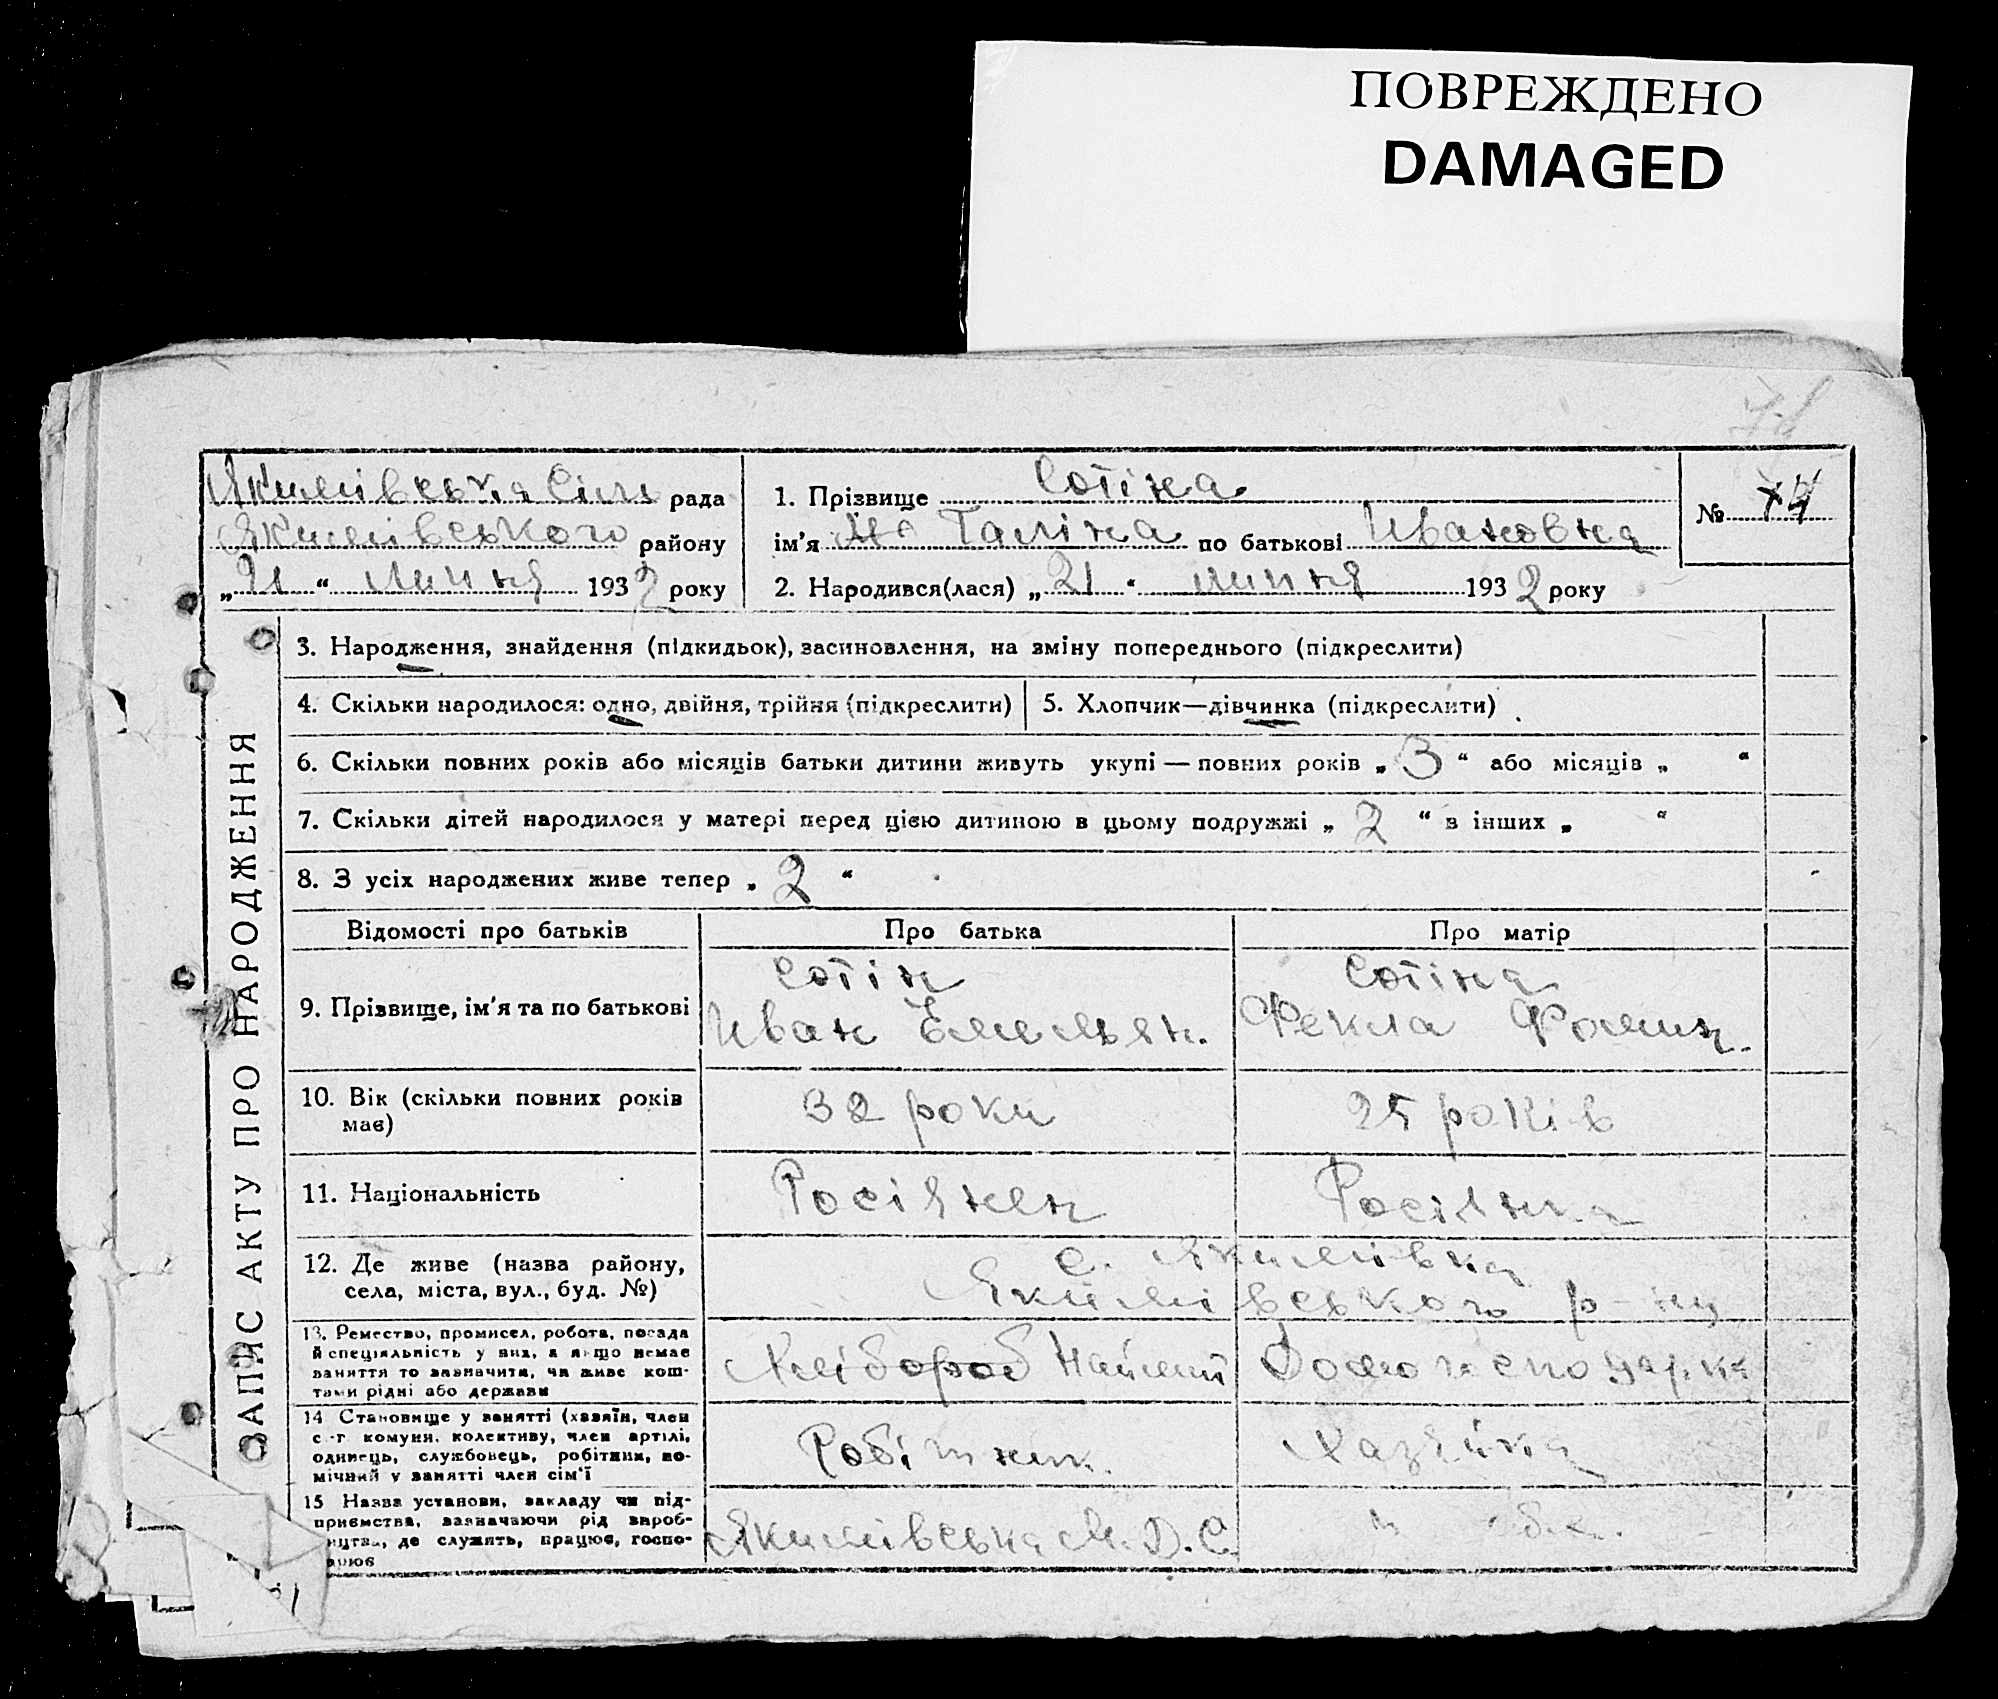 ПОВРЕЖДЕНО
DAMAGED
Якимівська Сіль рада
Якимівського району
„21“ липня 1932 року
1. Прізвище Сотіна
ім'я Галіна по батькові Ивановна
№ 74
2. Народився(лася) „21“ липня 1932 року
ЗАПИС АКТУ ПРО НАРОДЖЕННЯ
3. Народження, знайдення (підкидьок), засиновлення, на зміну попереднього (підкреслити)
4. Скільки народилося: одно, двійня, трійня (підкреслити)
5. Хлопчик—дівчинка (підкреслити)
6. Скільки повних років або місяців батьки дитини живуть укупі — повних років „3“ або місяців „ “
7. Скільки дітей народилося у матері перед цією дитиною в цьому подружжі „2“ в інших „ “
8. З усіх народжених живе тепер „2“
Відомості про батьків
Про батька
Про матір
9. Прізвище, ім'я та по батькові
Сотін
Иван Емельян.
Сотіна
Фекла Фомин.
10. Вік (скільки повних років
має)
32 роки
25 років
11. Національність
Росіянен
Росіянка
12. Де живе (назва району,
села, міста, вул., буд. №)
с. Якимівка
Якимівського р-ну
13. Ремество, промисел, робота, посада
й спеціяльність у них, а якщо немає
заняття то зазначити, чи живе кош-
тами рідні або держави
Хлібороб Найми
Домогосподарка
14 Становище у занятті (хазяїн, член
с.-г. комуни, колективу, член артілі,
одинець, службовець, робітник, по-
мічний у занятті член сім'ї
Робітник.
Хазяйка
15 Назва установи, закладу чи під-
приємства, зазначаючи рід вироб-
ництва, де служить, працює, госпо-
арює
Якимівська М.Д.С.